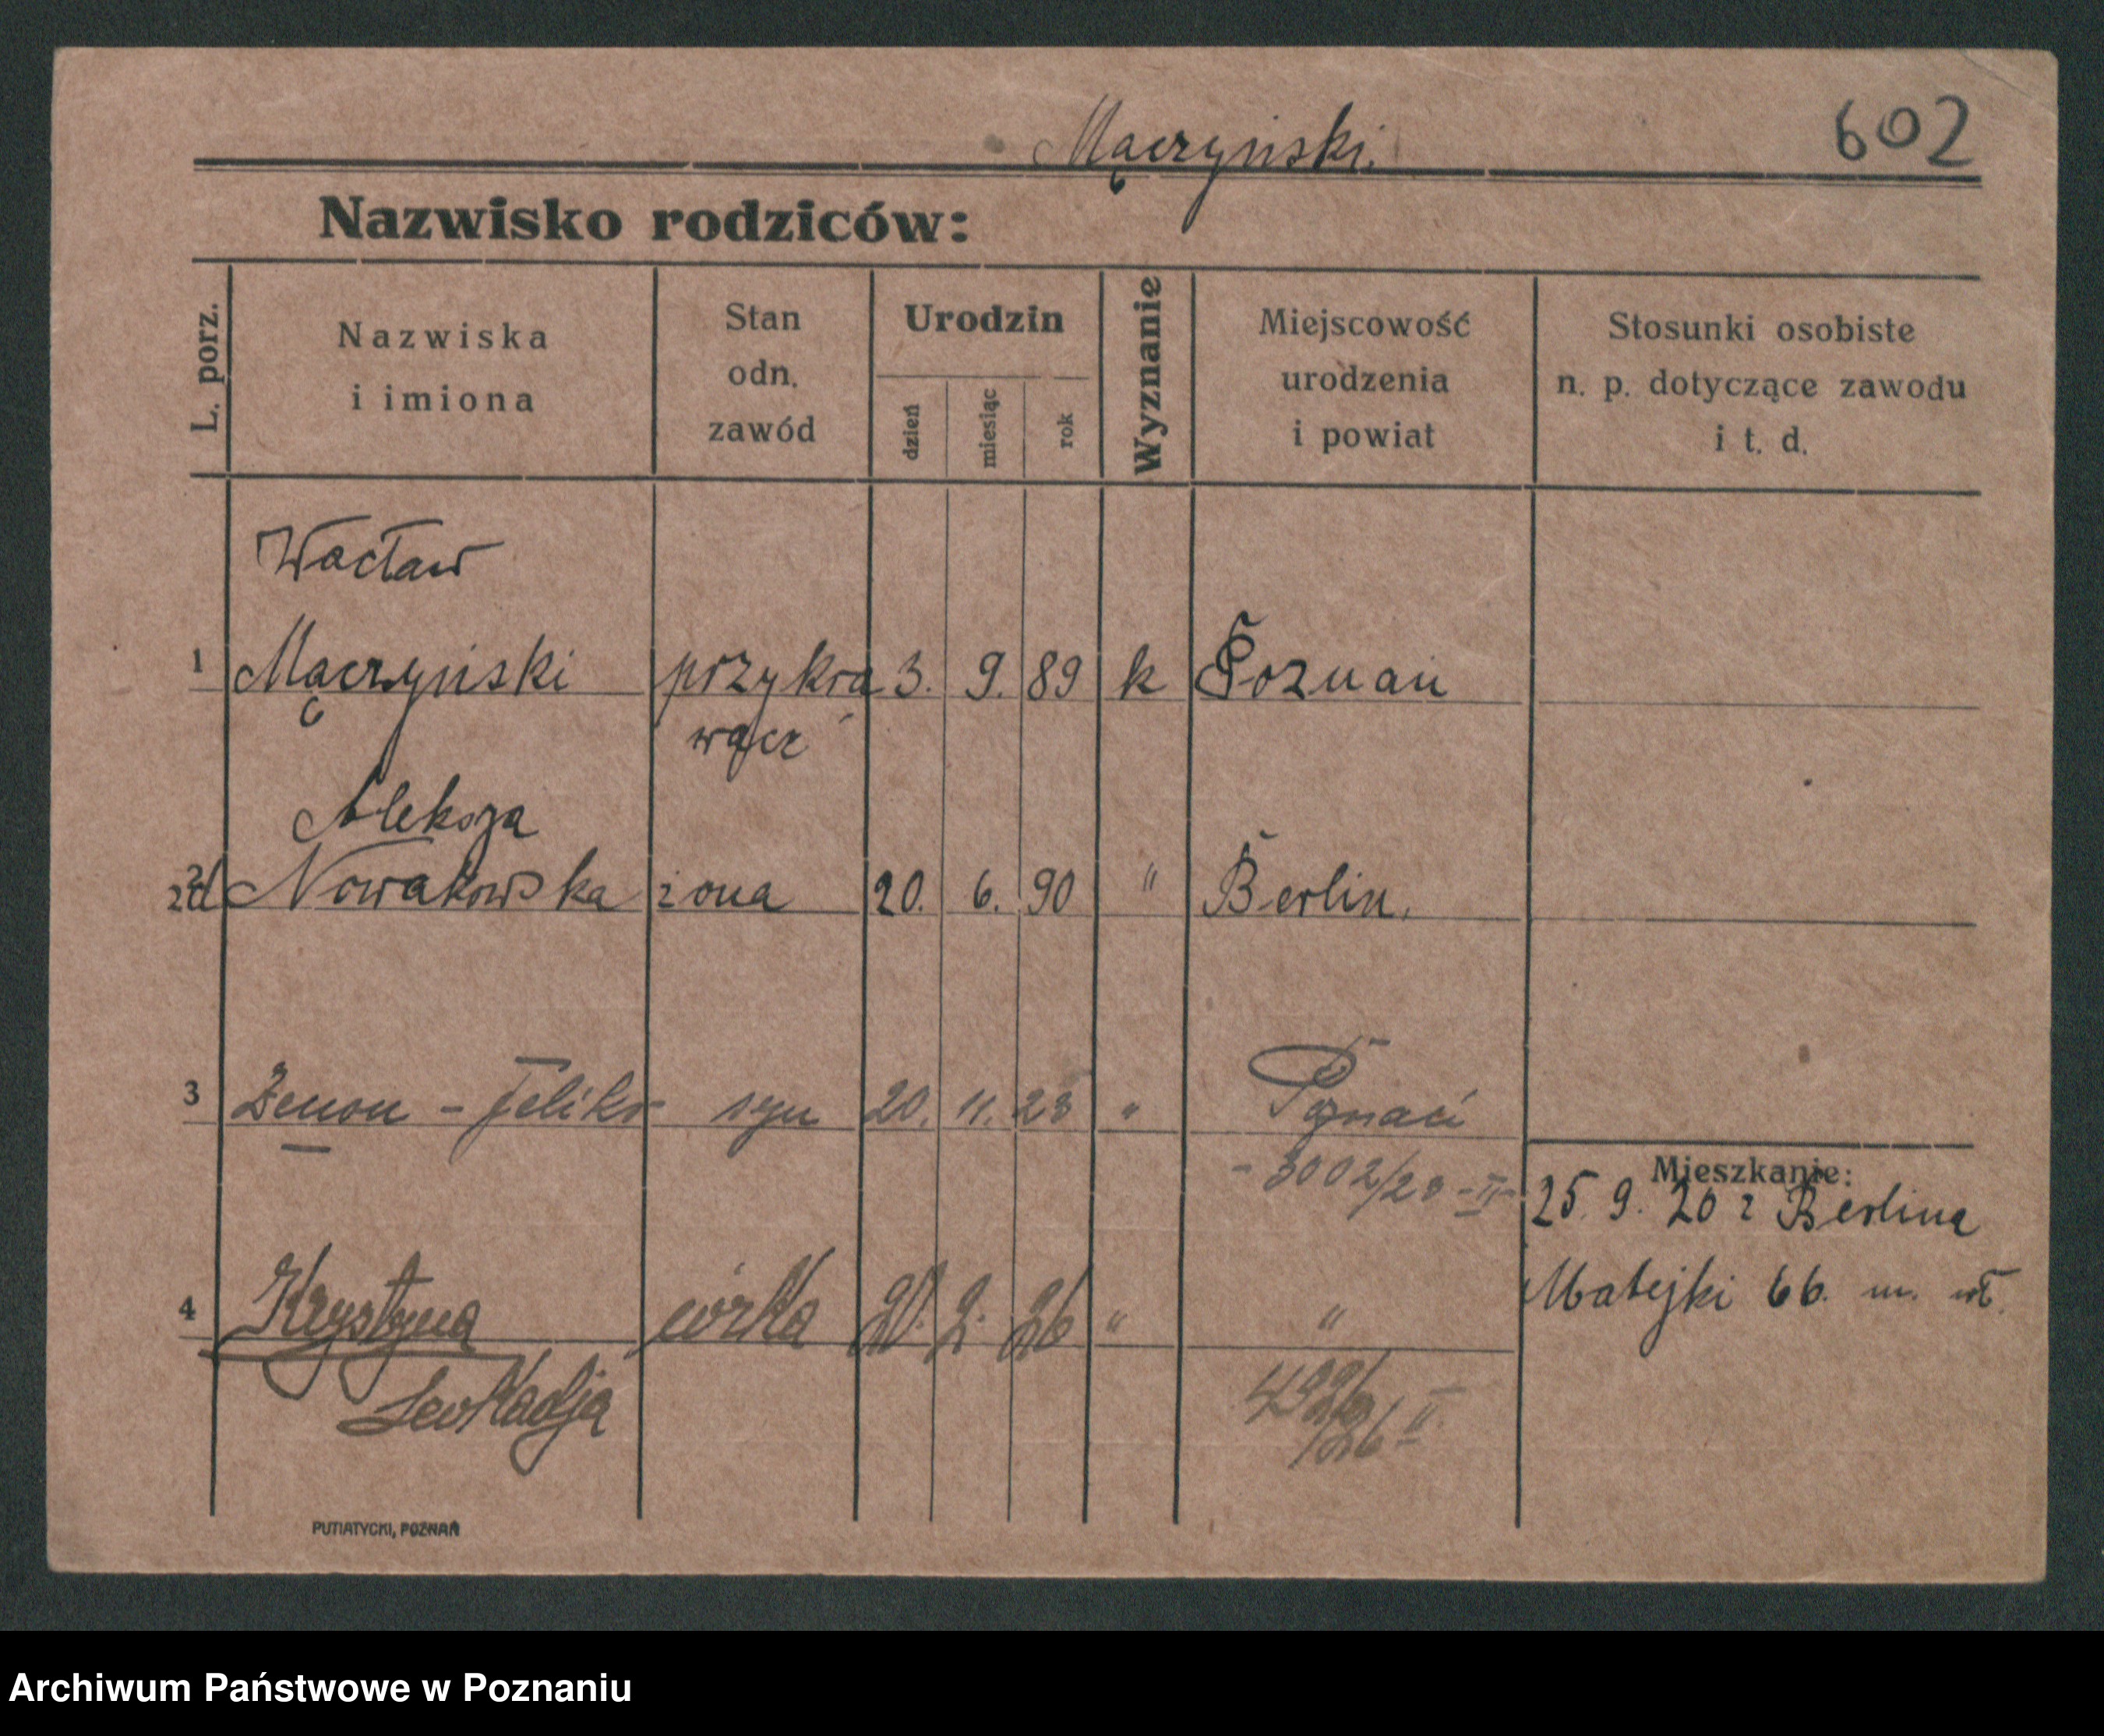 Mączyński.
602
Nazwisko rodziców:
L. porz.
Nazwiska
i imiona
Stan
odn.
zawód
Urodzin
dzień
miesiąc
rok
Wyznanie
Miejscowość
urodzenia
i powiat
Stosunki osobiste
n. p. dotyczące zawodu
i t. d.
Wacław
1 Mączyński przykra 3. 9. 89 k Poznań
wącz
Aleksja
2 Nowakowska żona 20. 6. 90 " Berlin.
3 Zenon - Feliks syn 20. 11. 23 " Poznań
- 3002/23 - II -
Mieszkanie:
25. 9. 20 z Berlina
Matejki 66. m. wł.
4 Krystyna córka 20. 2. 26 " "
Leokadja
26 II
PUTIATYCKI, POZNAŃ
Archiwum Państwowe w Poznaniu